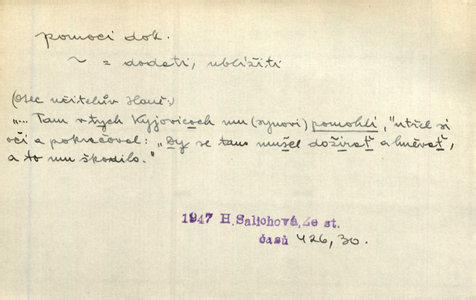 pomoci dok.
~ = dodati, ublížiti
(Otec učitelův Hanč:)
"... Tam v tych Kyjovicoch mu (synovi) pomohli," utřel si
oči a pokračoval: "Dy se tam mušel dožírať a hněvať,
a to mu škodilo."
1947 H. Salichová, Ze st.
časů 426, 30.